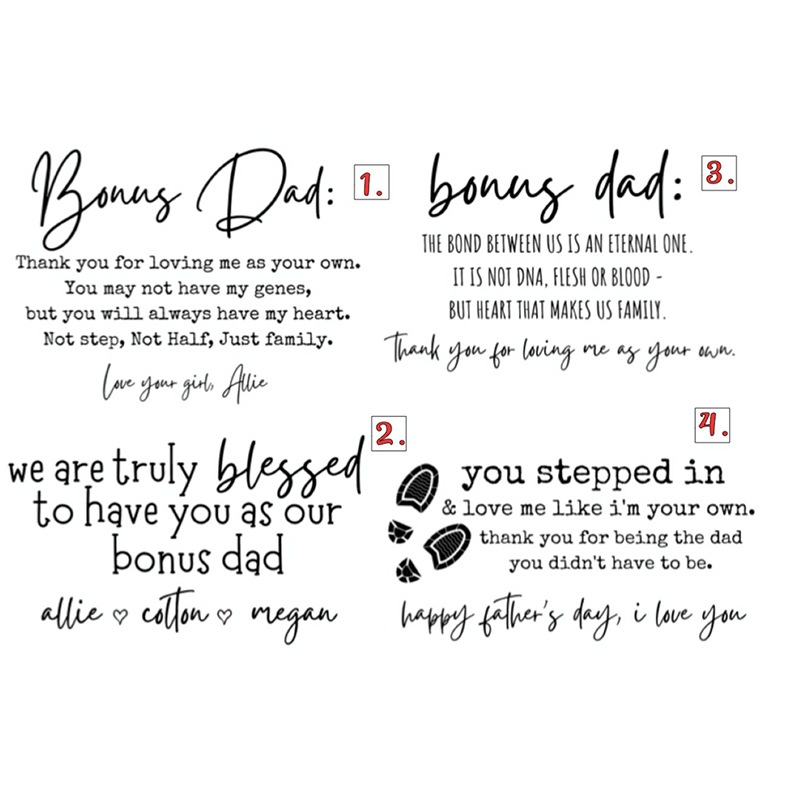 Bonus Dad:
1.
Thank you for loving me as your own.
You may not have my genes,
but you will always have my heart.
Not step, Not Half, Just family.
love your girl, Allie
2.
we are truly blessed
to have you as our
bonus dad
allie ♡ colton ♡ megan
bonus dad:
3.
THE BOND BETWEEN US IS AN ETERNAL ONE.
IT IS NOT DNA, FLESH OR BLOOD -
BUT HEART THAT MAKES US FAMILY.
Thank you for loving me as your own.
4.
you stepped in
& love me like i'm your own.
thank you for being the dad
you didn't have to be.
happy father's day, i love you